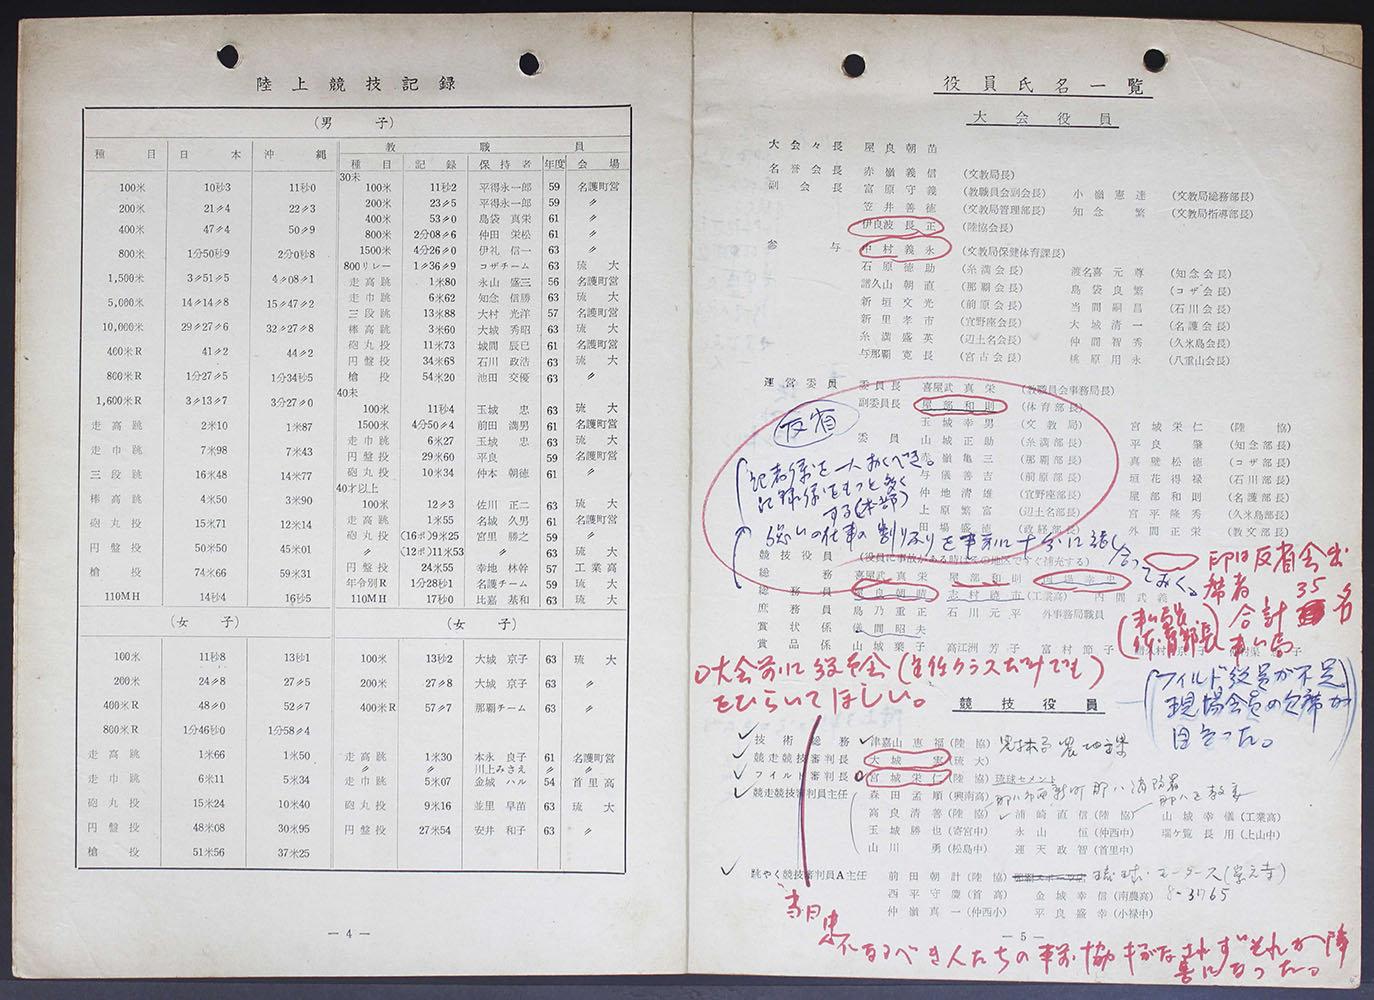 陸上競技記録
(男子)
種目 日本 沖縄 教職員
種目 記録 保持者 年度 会場
100米 10秒3 11秒0
200米 21〃4 22〃3
400米 47〃4 50〃9
800米 1分50秒9 2分0秒8
1,500米 3〃51〃5 4〃08〃1
5,000米 14〃14〃8 15〃47〃2
10,000米 29〃27〃6 32〃27〃8
400米R 41〃2 44〃2
800米R 1分27〃5 1分34秒5
1,600米R 3〃13〃7 3分27〃0
走高跳 2米10 1米87
走巾跳 7米98 7米43
三段跳 16米48 14米77
棒高跳 4米50 3米90
砲丸投 15米71 12米14
円盤投 50米50 45米01
槍投 74米66 59米31
110MH 14秒4 16秒5
30未
100米 11秒2 平得永一郎 59 名護町営
200米 23〃5 平得永一郎 59 〃
400米 53〃0 島袋真栄 61 〃
800米 2分08〃6 仲田栄松 61 〃
1500米 4分26〃0 伊礼信一 63 〃
800リレー 1〃36〃9 コザチーム 63 琉大
走高跳 1米80 永山盛三 56 名護町営
走巾跳 6米62 知念信勝 63 琉大
三段跳 13米88 大村光洋 57 名護町営
棒高跳 3米60 大城秀昭 63 琉大
砲丸投 11米73 城間辰巳 61 名護町営
円盤投 34米68 石川政浩 63 琉大
槍投 54米20 池田交優 63 〃
40未
100米 11秒4 玉城忠 63 琉大
1500米 4分50〃4 前田満男 61 名護町営
走巾跳 6米27 玉城忠 63 琉大
円盤投 29米60 平良 59 名護町営
砲丸投 10米34 仲本朝徳 61 〃
40才以上
100米 12〃3 佐川正二 63 琉大
走高跳 1米55 名城久男 61 名護町営
砲丸投 (16ポ)9米25 宮里勝之 59 〃
〃 (12ポ)11米53 〃 63 琉大
円盤投 24米55 幸地林幹 57 工業高
年令別R 1分28秒1 名護チーム 59 琉大
110MH 17秒0 比嘉基和 63 琉大
(女子) (女子)
100米 11秒8 13秒1 100米 13秒2 大城京子 63 琉大
200米 24〃8 27〃5 200米 27〃8 大城京子 63 〃
400米R 48〃0 52〃7 400米R 57〃7 那覇チーム 63 〃
800米R 1分46秒0 1分58〃4
走高跳 1米66 1米50 走高跳 1米30 本永良子 61 名護町営
〃 〃 川上みさえ 〃 〃
走巾跳 6米11 5米34 走巾跳 5米07 金城ハル 54 首里高
砲丸投 15米24 10米40 砲丸投 9米16 並里早苗 63 琉大
円盤投 48米08 30米95 円盤投 27米54 安井和子 63 〃
槍投 51米56 37米25
— 4 —
役員氏名一覧
大会役員
大会々長 屋良朝苗
名誉会長 赤嶺義信 (文教局長)
副会長 富原守義 (教職員会副会長) 小嶺憲達 (文教局総務部長)
笠井善徳 (文教局管理部長) 知念繁 (文教局指導部長)
伊良波長正 (陸協会長)
参与 中村義永 (文教局保健体育課長)
石原徳助 (糸満会長) 渡名喜元尊 (知念会長)
諸久山朝直 (那覇会長) 島袋良繁 (コザ会長)
新垣文光 (前原会長) 当間嗣昌 (石川会長)
新里孝市 (宜野座会長) 大城清一 (名護会長)
糸満盛英 (辺土名会長) 仲間智秀 (久米島会長)
与那覇寛長 (宮古会長) 桃原用永 (八重山会長)
運営委員 委員長 喜屋武真栄 (教職員会事務局長)
副委員長 屋部和則 (体育部長)
玉城幸男 (文教局) 宮城栄仁 (陸協)
委員 山城正助 (糸満部長) 平良肇 (知念部長)
赤嶺亀三 (那覇部長) 真壁松徳 (コザ部長)
与儀善吉 (前原部長) 垣花得禄 (石川部長)
仲地清雄 (宜野座部長) 屋部和則 (名護部長)
上原繁富 (辺土名部長) 宮平隆秀 (久米島部長)
田場盛徳 (政経部長) 外間正栄 (教文部長)
反省
記者係を一人おくべき。
記録係をもっと多くする(本部)
総いの仕事の割りふりを事前に十分に話し合っておく。
競技役員 (役員に事故がある時はその地区ですぐ補充する)
総務 喜屋武真栄 屋部和則
総務員 屋良朝晴 志村義市 (工業高) 内間武義
庶務員 島乃重正 石川元平 外事務局職員
賞状係 儀間昭夫
賞品係 山城葉子 高江洲芳子 富村節子
印は反省会出席者 35名
合計
○大会前に役員会(主任クラスだけでも)
をひらいてほしい。
(フィルド役員が不足
現場会員の欠席が
目立った。)
競技役員
技術総務 津嘉山恵福 (陸協)
競走競技審判長 大城実 (琉大)
フィルド審判長 宮城栄仁 (陸協) 琉球セメント
競走競技審判員主任 森田孟順 (興南高)
高良清善 (陸協) 浦崎直信 (陸協) 山城幸儀 (工業高)
玉城勝也 (寄宮中) 永山恒 (仲西中) 瑞ケ覧長用 (上山中)
山川勇 (松島中) 運天政智 (首里中)
跳やく競技審判員A主任 前田朝計 (陸協) 琉球・モータース
8-3765
西平守慶 (首高) 金城幸信 (南農高)
仲嶺真一 (仲西小) 平良盛幸 (小禄中)
— 5 —
当日
来るべき人たちの事前協ギがなされずそれが障害になった。